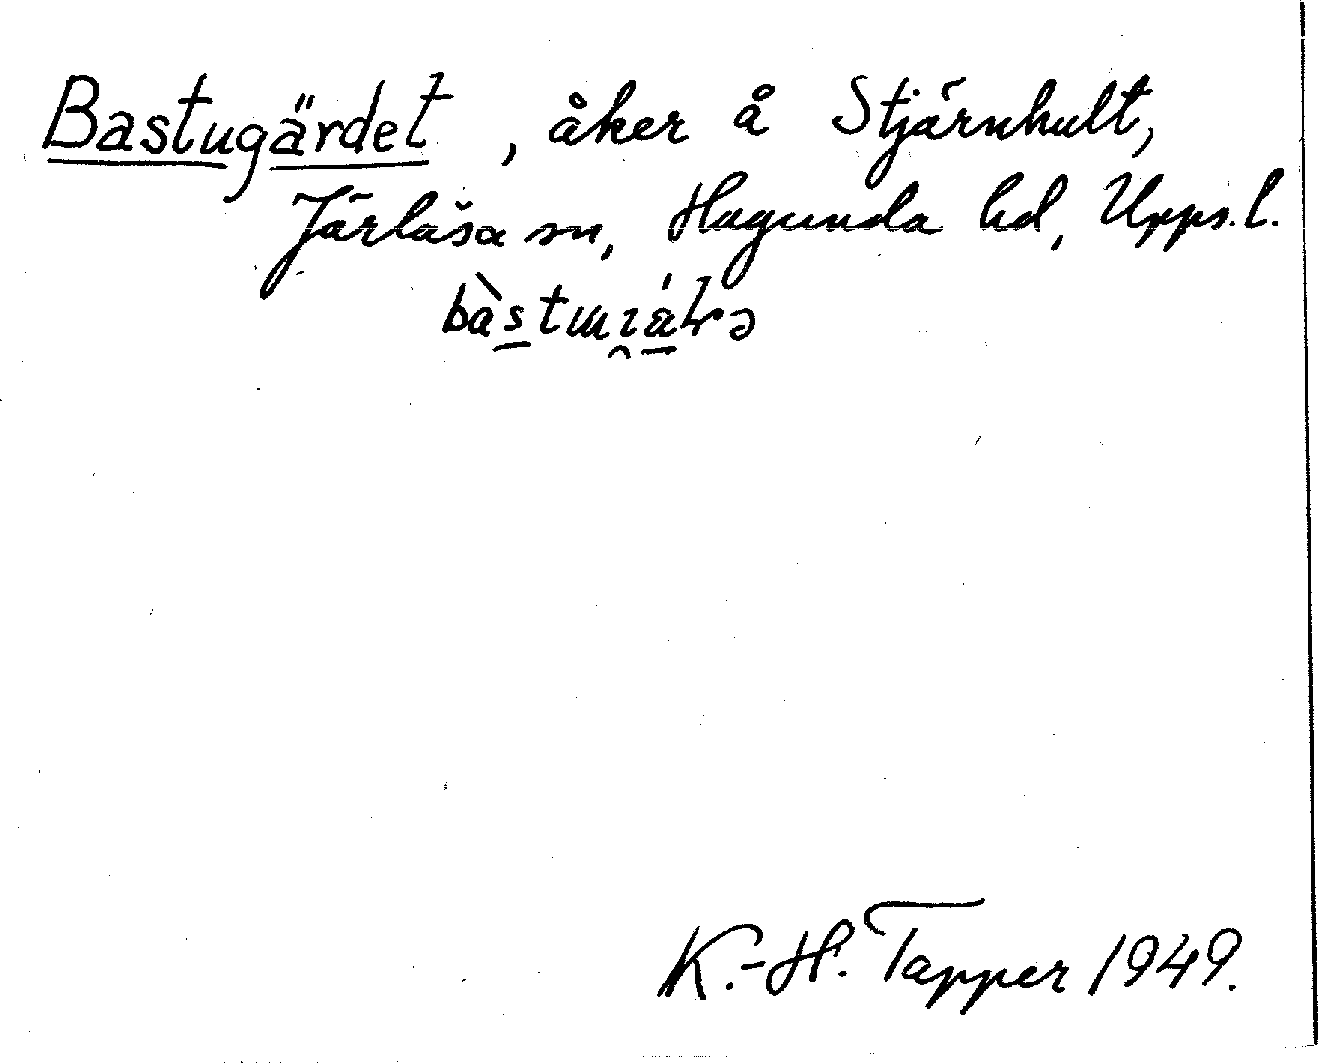 Bastugärdet, åker å Stjärnhult,
Järlåsa sn, Hagunda hd, Upps.l.
K.-H. Tapper 1949.